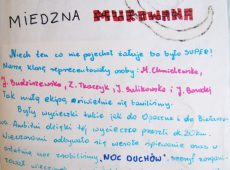 MIEDZNA MUROWANA
Niech ten co nie pojechał żałuje bo było SUPER!
Naszą klasę reprezentowały osoby: M. Chmielewska,
J. Budziszewska, Z. Tkaczyk, J. Sulikowska i J. Banaś
Tak małą ekipą świetnie się bawiliśmy.
Były wycieczki takie jak do Opoczna i do
Ambitni dzięki tej wycieczce przeszli ok. 20km.
Wieczorami odbywało się wesołe śpiewanie oraz w
ostatnią noc zrobiliśmy "NOC DUCHÓW".